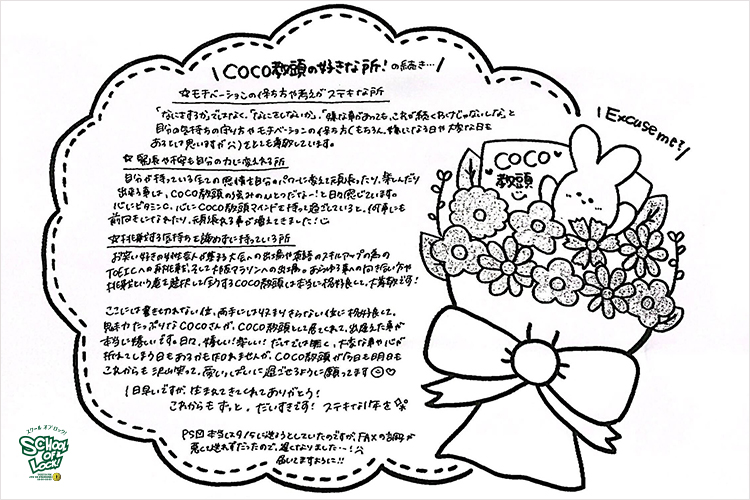 \COCO教頭の好きな所!の続き…/
☆モチベーションの保ち方や考え方がステキな所
「なにするか」ではなく、「なにをしないか」、「嫌な事があっても、これが続くわけじゃないしな」と
自分の気持ちの守り方やモチベーションの保ち方(もちろん、難しくなる日や大変な日も
あると思いますが💦)をとても尊敬しています。
☆緊張や不安も自分の力に変えれる所
自分が持っている全ての感情を自分のパワーに変えて頑張ったり、楽しんだり
出来る事は、COCO教頭の強みのひとつだな〜!と日々感じています。
心にビタミンC、心にCOCO教頭マインドを持って過ごしていると、何事にも
前向きになれたり、頑張れる事が増えてきました!
☆挑戦する気持ちを諦めずに持っている所
お笑い好きの女性芸人が集まる大会への出場や英語のスキルアップの為の
TOEICへの再挑戦、そして大阪マラソンへの出場。あらゆる事への向き合い方や
挑戦という扉を沢山開こうとするCOCO教頭は本当に格好良くて、大尊敬です!
ここには書ききれない位、両手にはおさまりきらない位に格好良くて、
魅力たっぷりなCOCOさんが、COCO教頭として居てくれて、出逢えた事が
本当に嬉しいです。日々、嬉しい!楽しい!だけでは無く、大変な事や心が
折れてしまう日もあるかも知れませんが、COCO教頭が今日も明日も
これからも沢山笑って、愛いっぱいに過ごせるように願ってます☺♡
1日早いですが、生まれてきてくれてありがとう!
これからもずっと、だいすきです!ステキな1年を☆
PS 本当は9/5に送ろうとしていたのですが、FAXの調子が
悪くて送れずだったので、遅くなりました…!💦
届いてますように!!
\Excuse me?/
COCO
教頭
スクール オブ ロック!
SCHOOL
OF
LOCK!